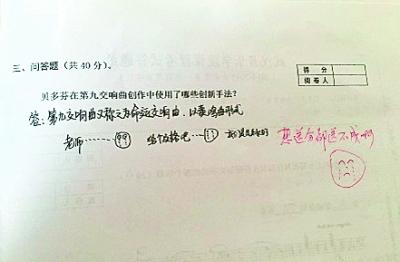 三、问答题（共40分）。
得 分
阅 卷 人
贝多芬在第九交响曲创作中使用了哪些创新手法？
答：第九交响曲又称之为命运交响曲，以奏鸣曲形式
老师……给个及格吧……
想送分都送不成啊